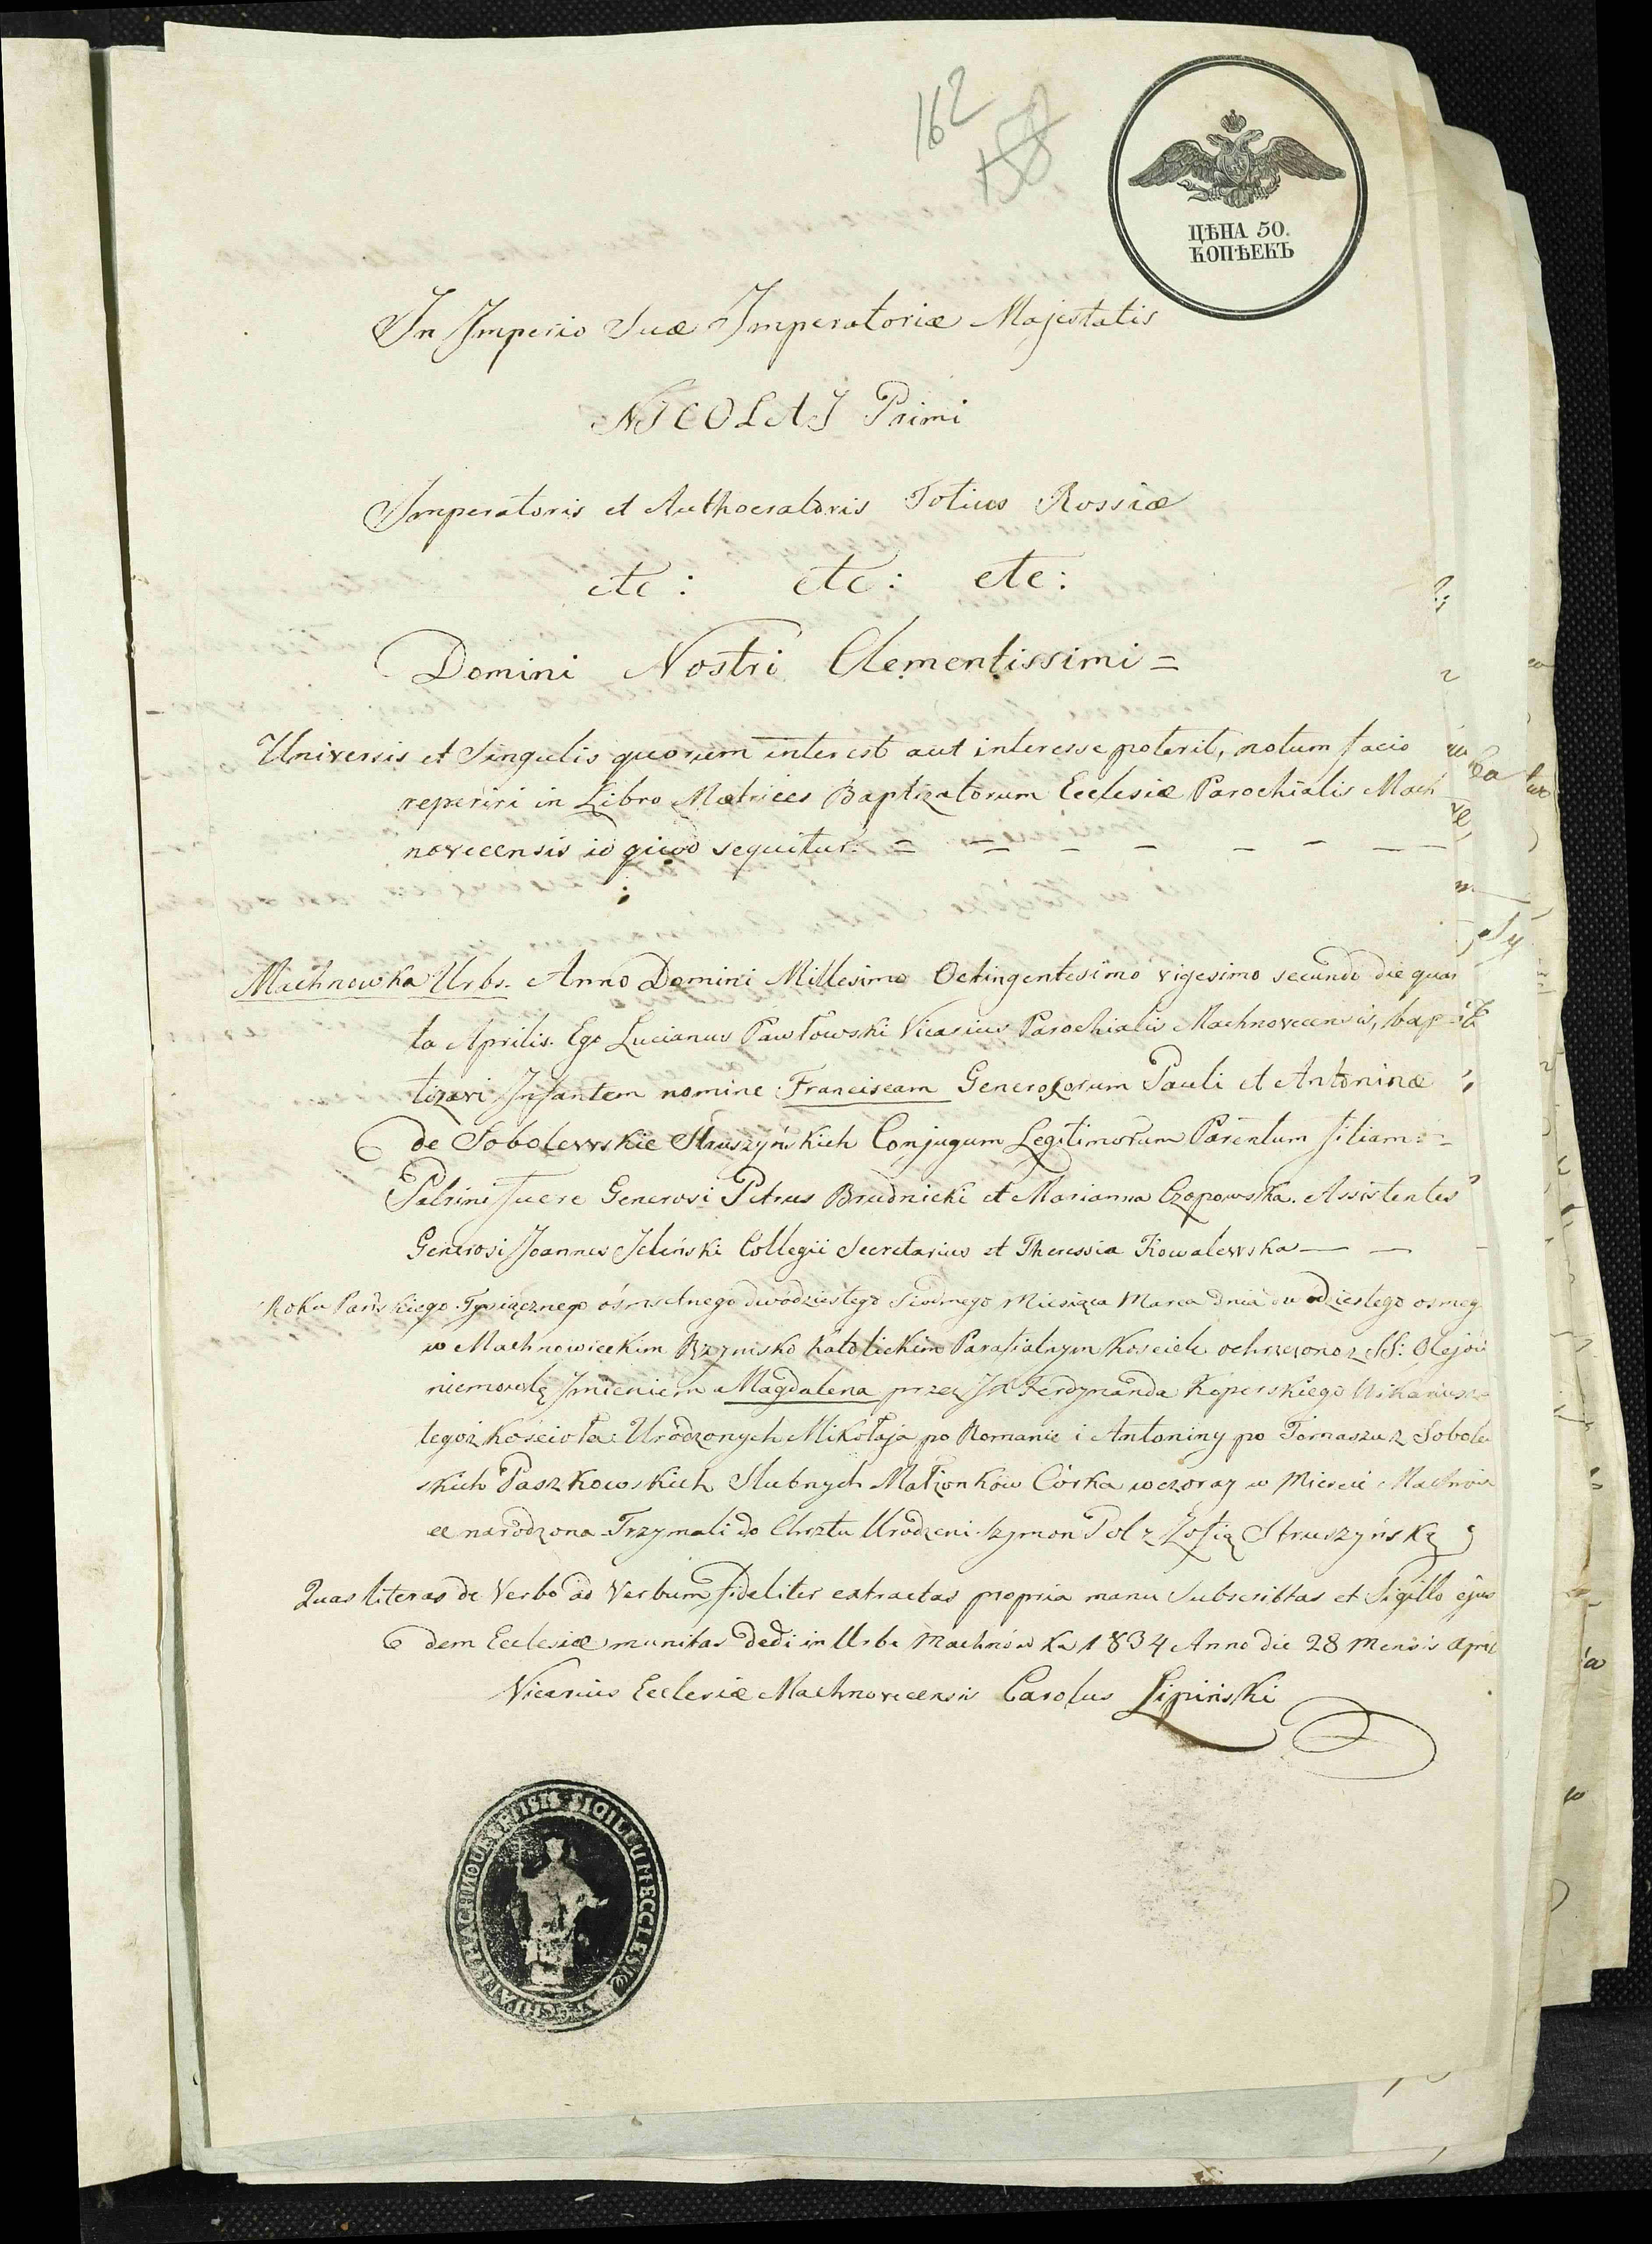 162
158
ЦѢНА 50.
КОПѢЕКЪ
In Imperio Suæ Imperatoriæ Majestatis
NICOLAI Primi
Imperatoris et Authocratoris Totius Rossiæ
etc: etc: etc:
Domini Nostri Clementissimi =
Universis et Singulis quorum interest aut interesse poterit, notum facio
reperiri in Libro Metrices Baptizatorum Ecclesiæ Parochialis Mach
novecensis id quod sequitur: = = = – – – – – –
Machnowka Urbs. Anno Domini Millesimo Octingentesimo vigesimo secundo die quar
ta Aprilis. Ego Lucianus Pawłowski Vicarius Parochialis Machnovecensis, bap
tizavi Infantem nomine Franciscam Generozorum Pauli et Antoninæ
de Sobolewskie Struszyńskich Conjugum Legitimorum Parentum filiam: =
Patrini fuere Generosi Petrus Brudnicki et Marianna Czopowska. Assistentes
Generosi Joannes Jeleński Collegii Secretarius et Theressia Kowalewska — —
Roku Pańskiego Tysiącznego ośmsetnego dwódziestego Siodmego Miesiąca Marca dnia dwódziestego osmeg
w Machnowieckim Rzymsko Katolickim Parafialnym Kosciele ochrzczono z SS: Olejow
niemowlę Jmieniem Magdalena przez JX Ferdynanda Koperskiego Wikariusza
tegoż Kościoła: Urodzonych Mikołaja po Romanie i Antoniny po Tomaszu z Sobole
skich Paszkowskich Slubnych Małżonków Córka wczoray w Miescie Machnów
ce narodzona. Trzymali do Chrztu Urodzeni Szymon Pol z Zofią Struszyńską
Quas literas de Verbo ad Verbum fideliter extractas propria manu Subscribtas et Sigillo ejus
dem Ecclesiæ munitas dedi in Urbe Machnówka 1834 Anno die 28 Mensis April
Vicarius Ecclesiæ Machnovecensis Carolus Lipiński
SIGILLUM ECCLESIÆ